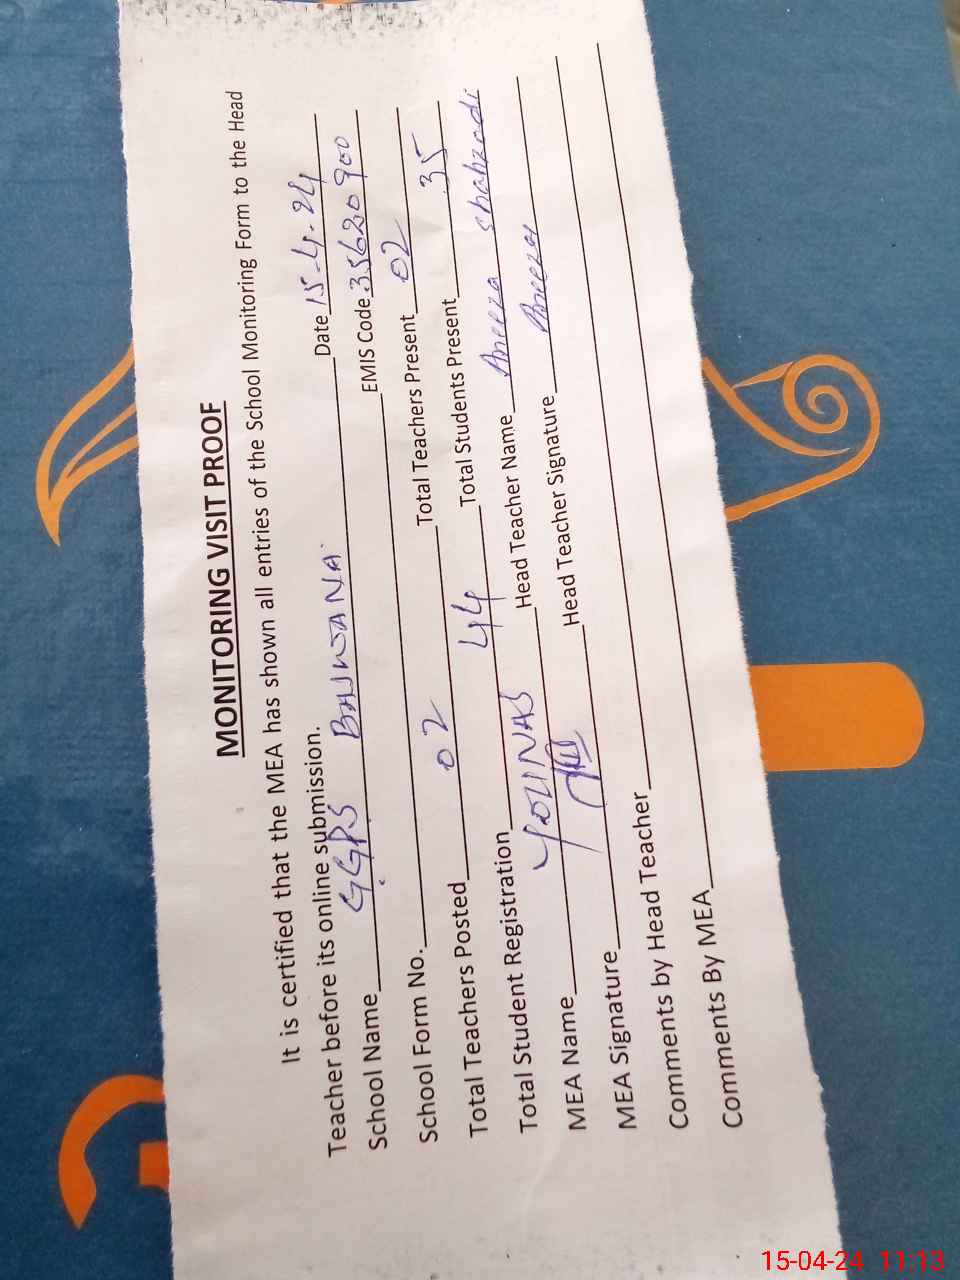 MONITORING VISIT PROOF
It is certified that the MEA has shown all entries of the School Monitoring Form to the Head
Teacher before its online submission.
School Name GGPS Date 15-4-24
School Form No. EMIS Code 35620900
Total Teachers Posted 02 Total Teachers Present 02
Total Student Registration 44 Total Students Present 35
MEA Name YOUNAS Head Teacher Name Aneeza Shahzadi
MEA Signature Head Teacher Signature Aneeza
Comments by Head Teacher
Comments By MEA
15-04-24 11:13